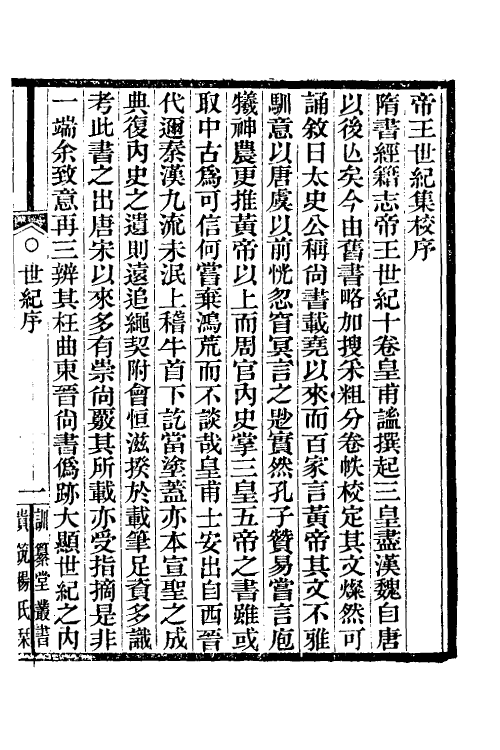 帝王世紀集校序
隋書經籍志帝王世紀十卷皇甫謐撰起三皇盡漢魏自唐
以後亾矣今由舊書略加搜采粗分卷帙校定其文燦然可
誦敘曰太史公稱尙書載堯以來而百家言黃帝其文不雅
馴意以唐虞以前恍忽窅冥言之尠實然孔子贊易嘗言庖
犧神農更推黃帝以上而周官內史掌三皇五帝之書雖或
取中古爲可信何嘗棄鴻荒而不談哉皇甫士安出自西晉
代邇秦漢九流未泯上稽牛首下訖當塗蓋亦本宣聖之成
典復內史之遺則遠追繩契附會恒滋揆於載筆足資多識
考此書之出唐宋以來多有崇尙覈其所載亦受指摘是非
一端余致意再三辨其枉曲東晉尙書僞跡大顯世紀之內
世紀序
一
訓纂堂叢書
貴筑楊氏栞